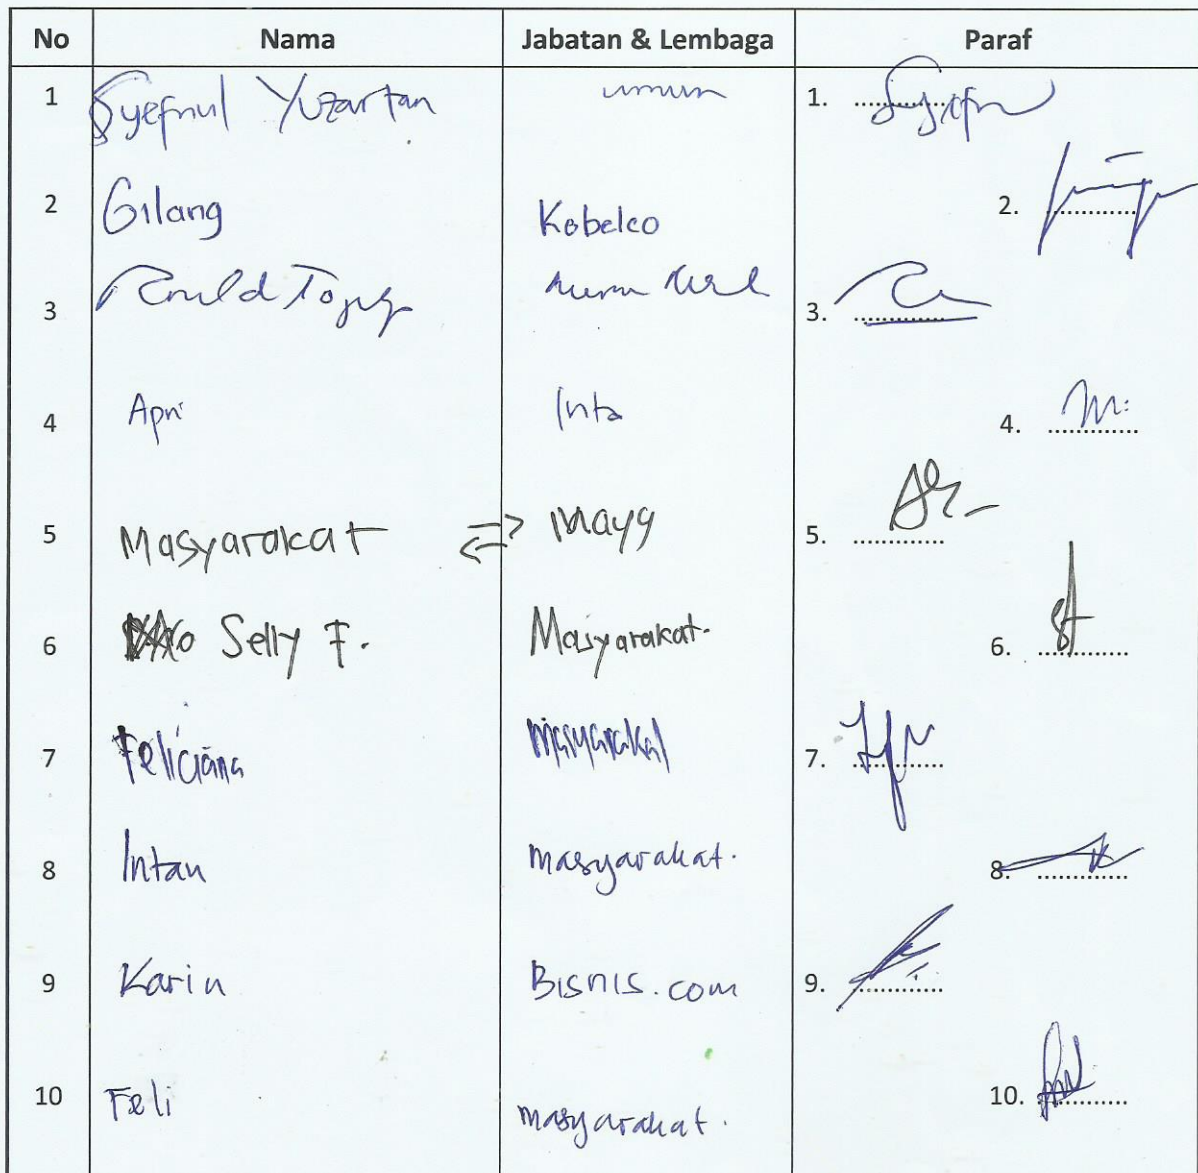 No Nama Jabatan & Lembaga Paraf
1 Syefnul Yuzartan umum 1. ............
2 Gilang Kobelco 2. ............
3 3. ............
4 Apri Inta 4. ............
5 Masyarakat ⇄ Maya 5. ............
6 Selly F. Masyarakat. 6. ............
7 Feliciana Masyarakat 7. ............
8 Intan masyarakat. 8. ............
9 Karin Bisnis.com 9. ............
10 Feli masyarakat. 10. ............